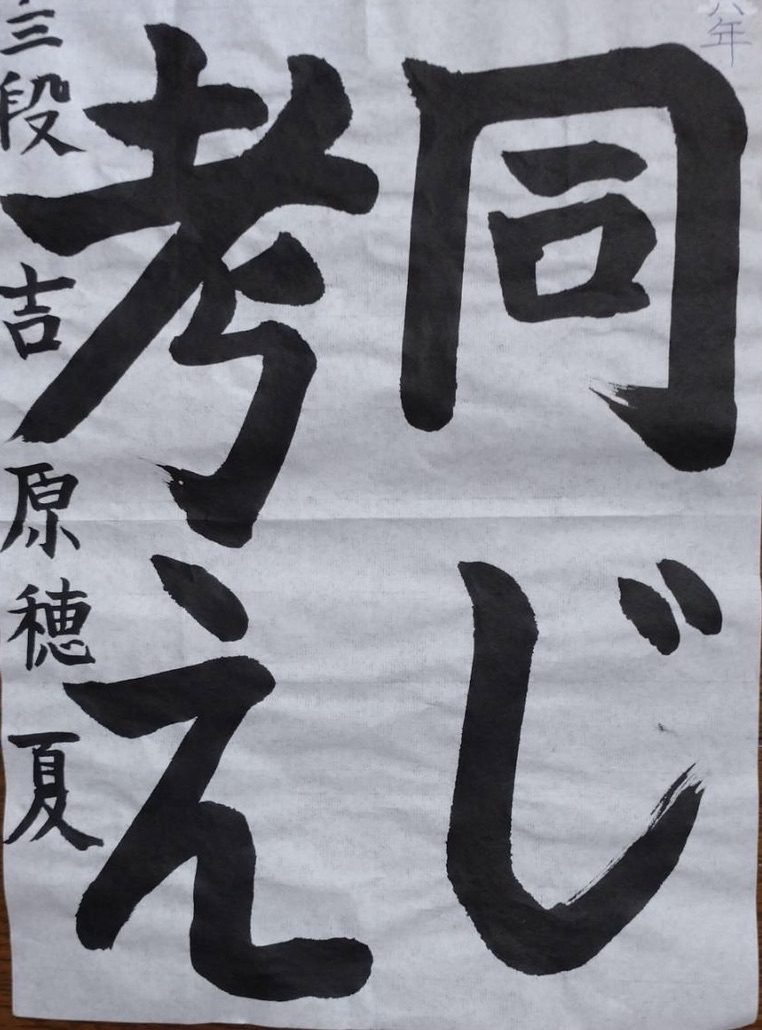 年
同じ
考え
三段 吉原穂夏